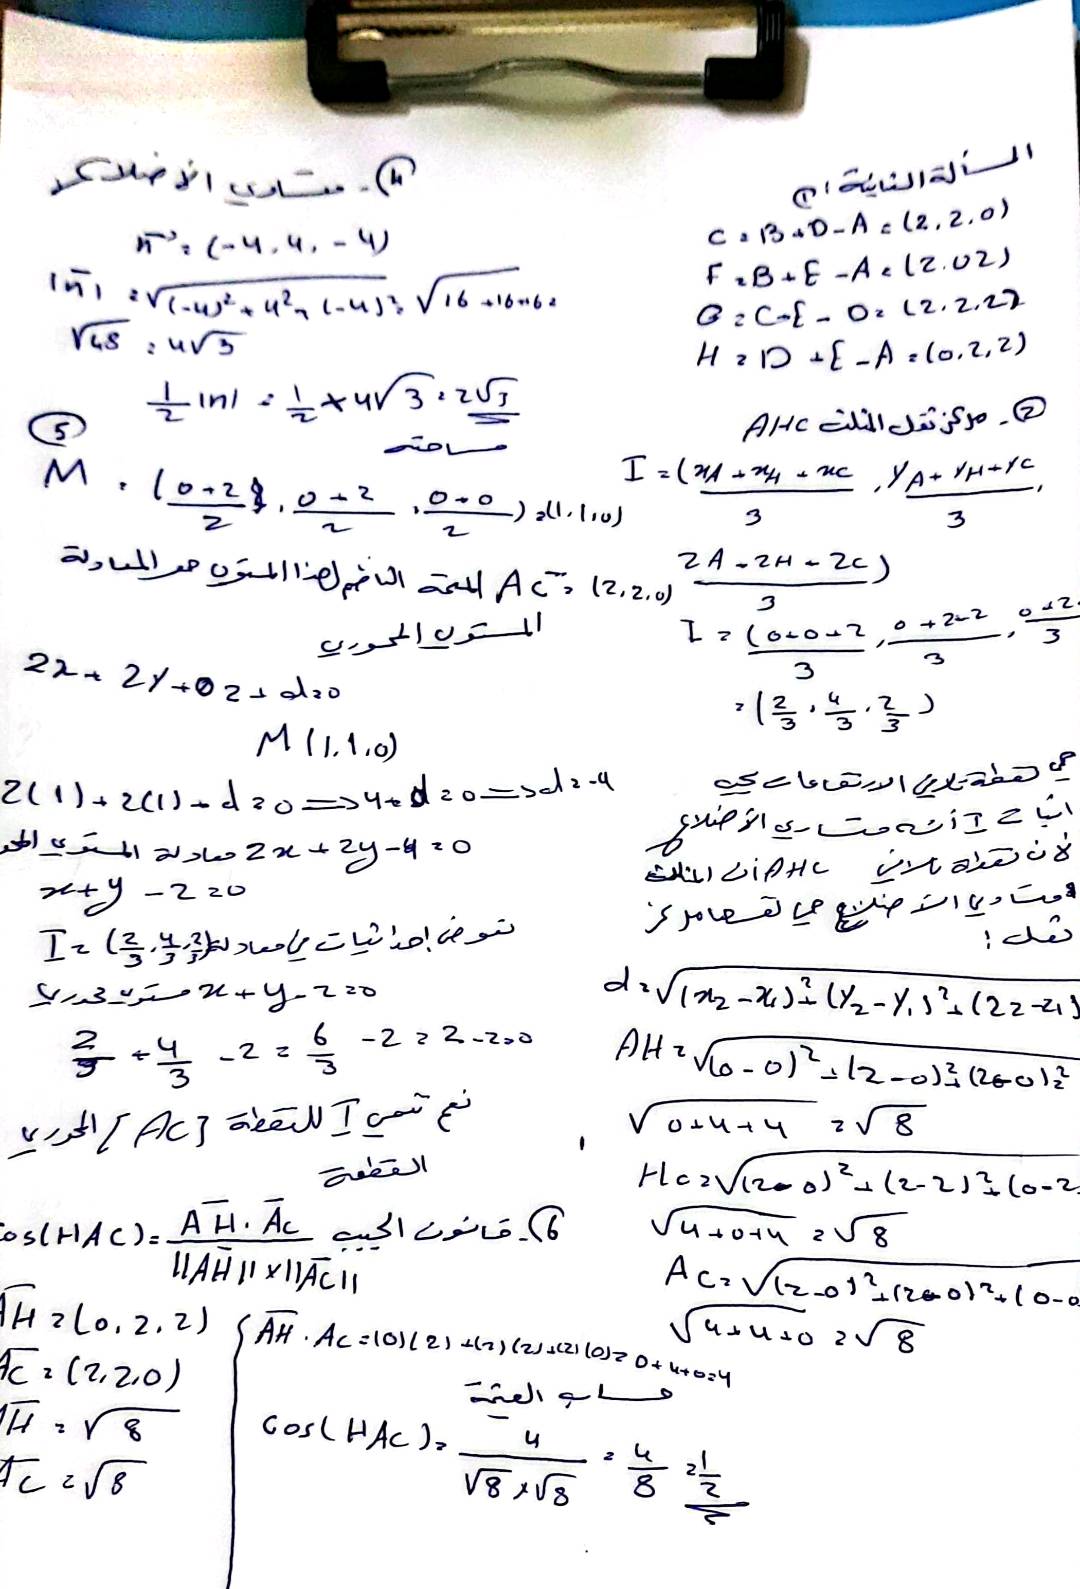 المسألة الثانية ١)
C = B + D - A = (2, 2, 0)
F = B + E - A = (2. 0 2)
G = C + E - D = (2, 2, 2)
H = D + E - A = (0, 2, 2)
② - مركز ثقل المثلث AHC
I = (xA + xH + xC / 3 , yA + yH + yC / 3 ,
zA + zH + zC / 3)
I = (0+0+2 / 3 , 0+2+2 / 3 , 0+2 / 3
= (2/3 , 4/3 , 2/3)
هي نقطة تلاقي الارتفاعات يجب
أنه متساوي الأضلاع
لأن نقطة تلاقي AHC أن المثلث
متساوي الأضلاع هي نفسها مركز
ثقل :
d = √(x2 - x1)² + (y2 - y1)² + (z2 - z1)
AH = √(0 - 0)² + (2 - 0)² + (2 - 0)²
√0+4+4 = √8
HC = √(2 - 0)² + (2 - 2)² + (0 - 2
√4+0+4 = √8
AC = √(2 - 0)² + (2 - 0)² + (0 - 0
√4+4+0 = √8
④ - متساوي الأضلاع
n = (-4, 4, -4)
|n| = √(-4)² + 4² + (-4)² = √16+16+16 =
√48 = 4√3
1/2 |n| = 1/2 × 4√3 = 2√3
مساحته
⑤
M = (0+2 / 2 , 0+2 / 2 , 0+0 / 2) = (1, 1, 0)
AC = (2, 2, 0) المتجه الناظم لهذا المستوي هو المعادلة
المستوي المحوري
2x + 2y + 0z + d = 0
M (1, 1, 0)
2(1) + 2(1) + d = 0 ⟹ 4 + d = 0 ⟹ d = -4
2x + 2y - 4 = 0 معادلة المستوي
x + y - 2 = 0
نعوض إحداثيات في معادلة I = (2/3 , 4/3 , 2/3)
x + y - 2 = 0 مستوي محوري
2/3 + 4/3 - 2 = 6/3 - 2 = 2 - 2 = 0
نعم تنتمي I للنقطة [AC] المحوري
القطعة
⑥ - قانون الجيب cos(HAC) = AH . AC / ||AH|| × ||AC||
AH = (0, 2, 2)
AC = (2, 2, 0)
AH = √8
AC = √8
AH . AC = (0)(2) + (2)(2) + (2)(0) = 0 + 4 + 0 = 4
حساب القيمة
cos(HAC) = 4 / √8 × √8 = 4/8 = 1/2